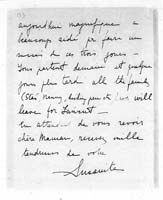 aujourd'hui magnifique a
beaucoup aidé pr faire un
succès de ces trois jours -
Vous partent demain et quelques
jours plus tard all the family
leave for Taussat -
En attendant de vous revoir
chère Maman, recevez mille
tendresses de votre
Suzanita